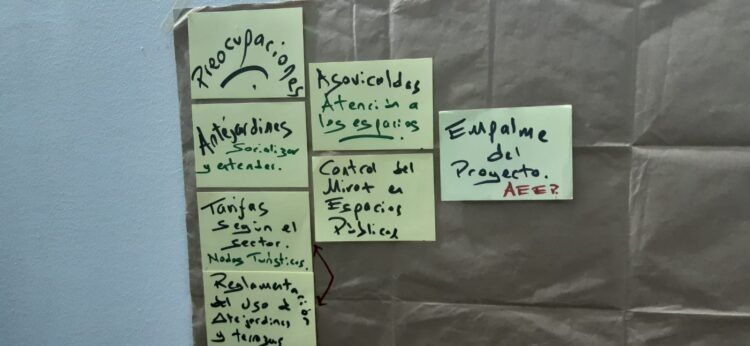 Preocupaciones
Antejardines
Socializar
y entender.
Tarifas
según el
sector.
Nodos Turísticos.
Reglamentación
del Uso de
Antejardines
y terrazas
Atención a
los espacios
Control del
en
Espacios
Públicos
Empalme
del
Proyecto.
AEEP.